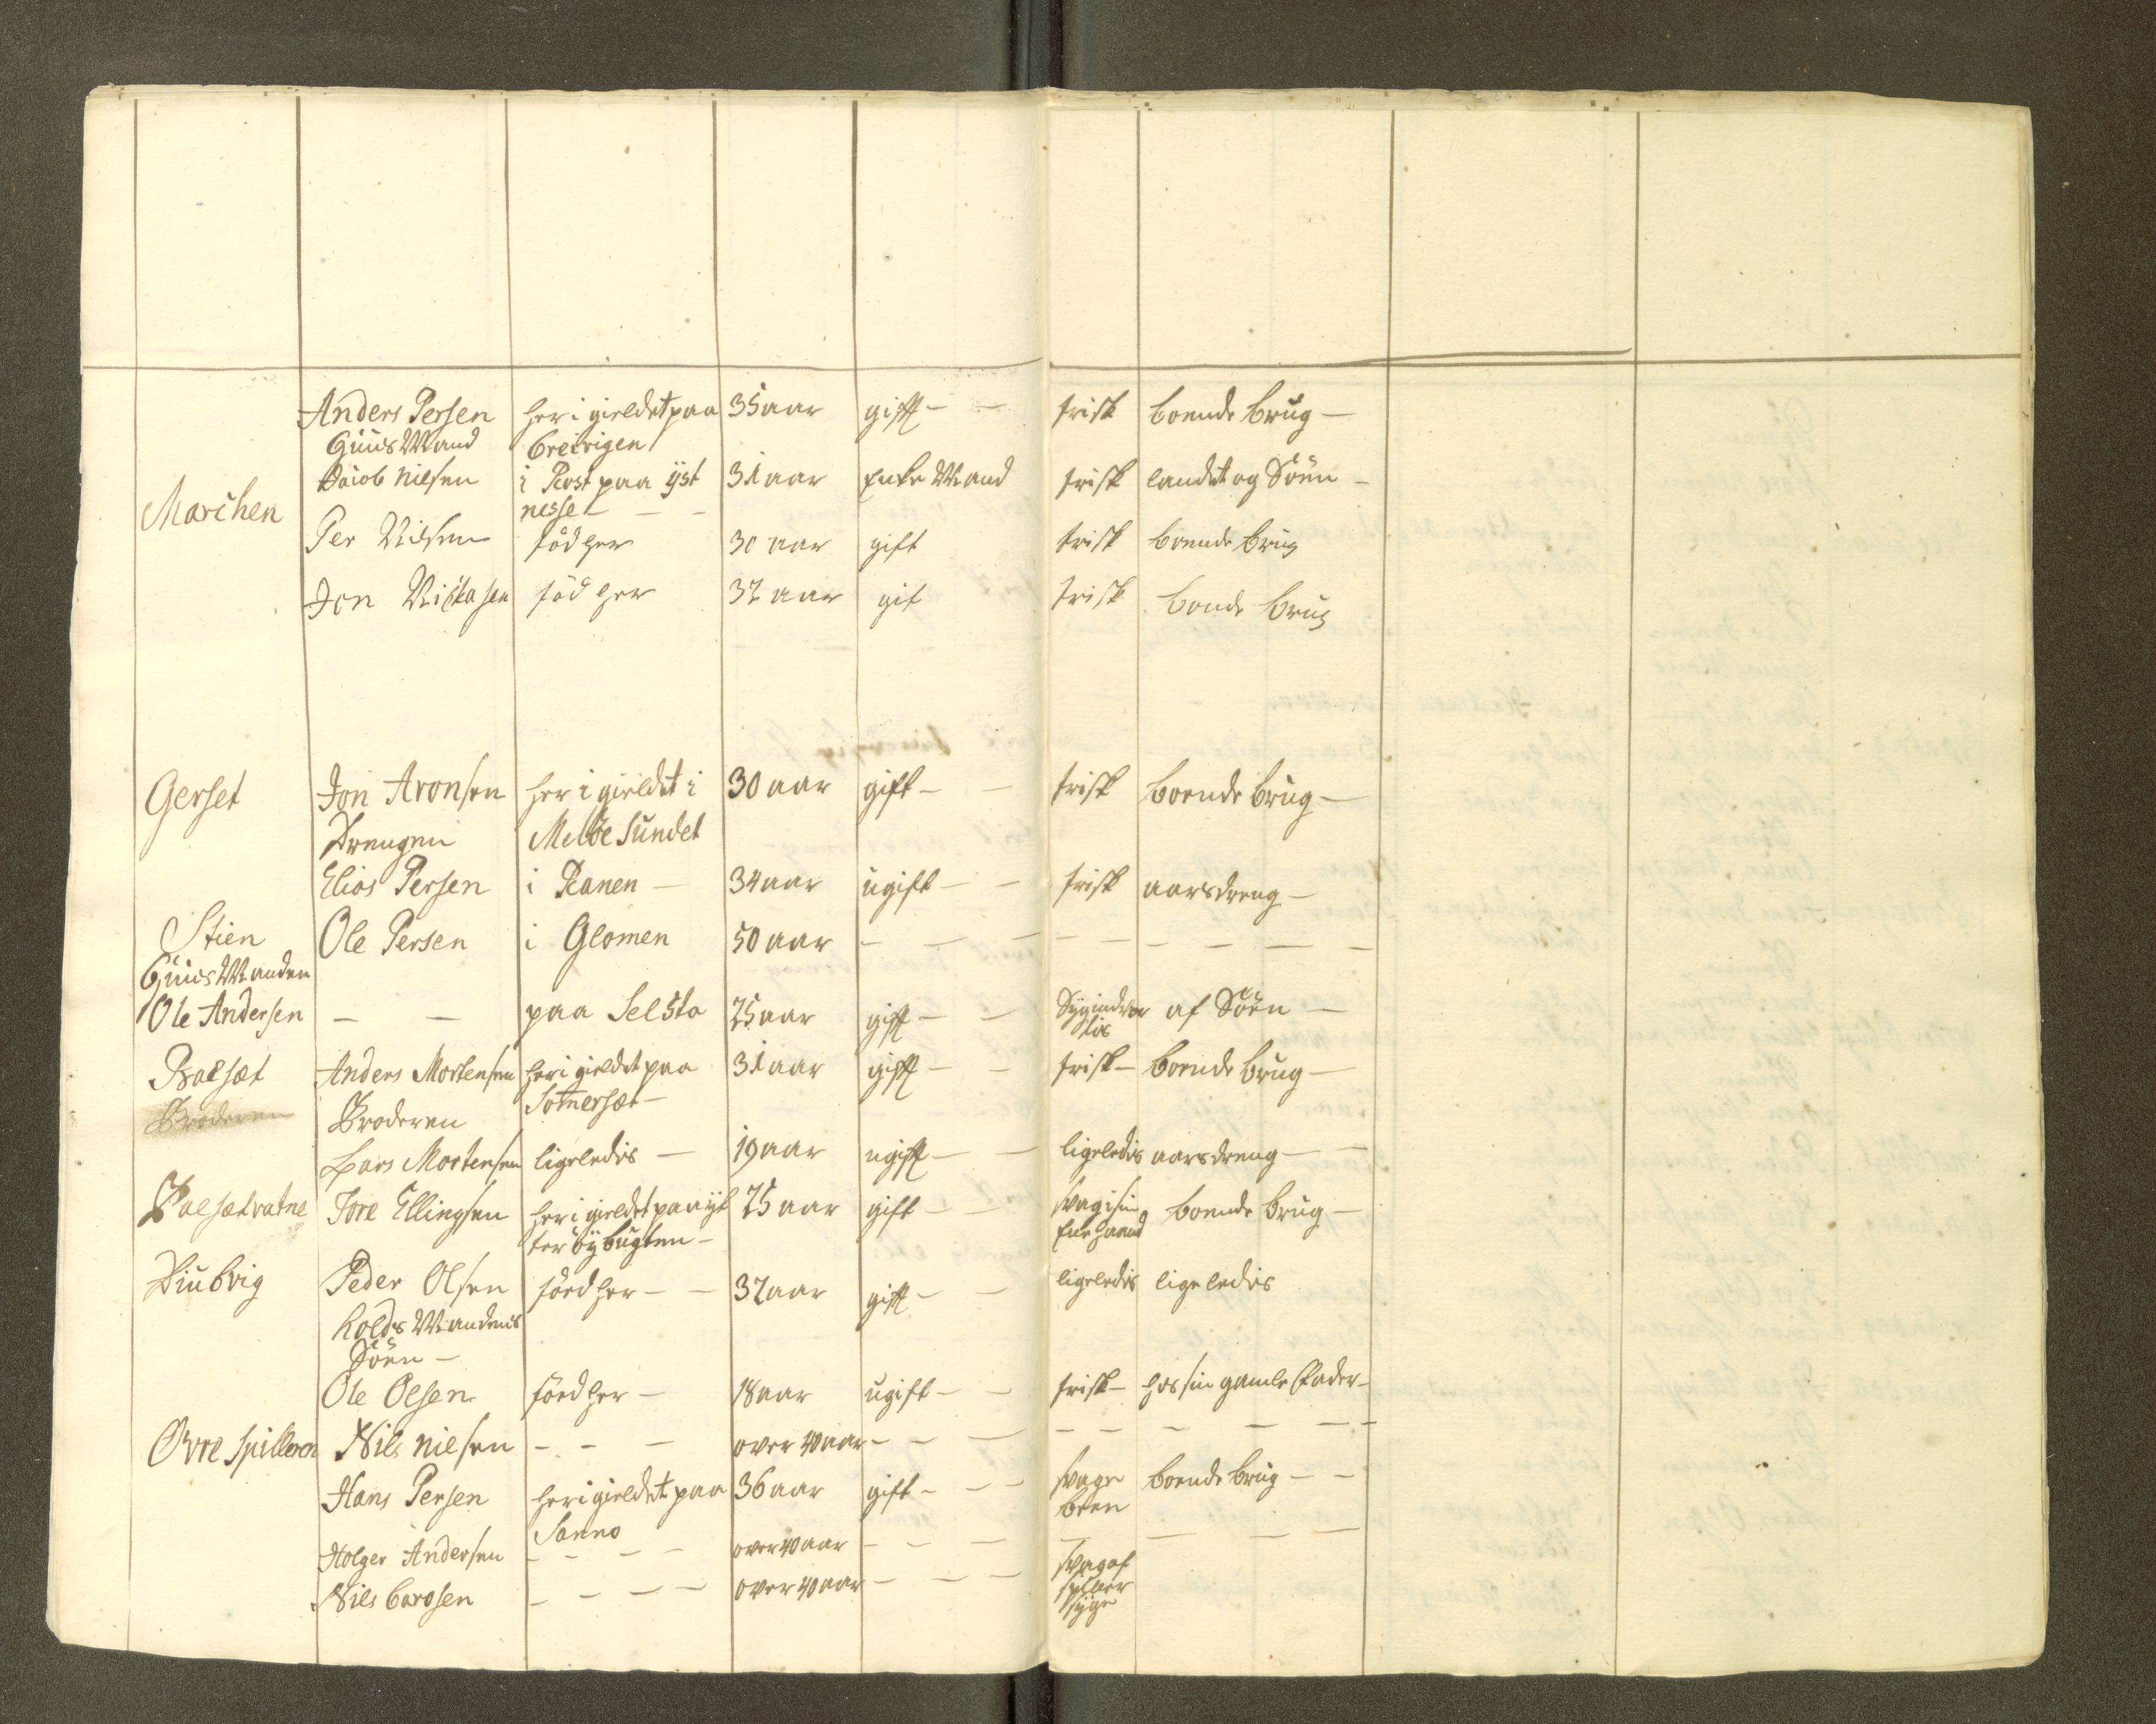 Anders Persen her i gieldet paa 35 aar gifft - - frisk boende brug -
Huus Mand breivigen
Marchen Jaiob Nilsen i Rost paa yst 31 aar Enke Mand frisk landet og Söen -
nesse - - -
Per Nilsen föd her 30 aar gift frisk boende brug
Jon föd her 32 aar gif frisk bonde brug
Gerset Jon Aronsen her i gieldet i 30 aar gift - - frisk boende brug -
Drengen Melöe Sundet
Elias Persen i Ranen - 34 aar ugift - - frisk aarsdreng -
Stien Ole Persen i Glomen 50 aar - - - - - - - - -
Huus Manden
Ole Andersen - - paa Selsto 25 aar gifft - - af Söen -
Balsæt Anders Mortensen her i gieldet paa 31 aar gifft - - frisk - boende brug -
Broderen Broderen Somersæt -
Lars Mortensen ligeledes - 19 aar ugifft - - ligeledes aarsdreng - -
Balsætvatne Tore Ellingsen her i gieldet paa yt 25 aar gift - - svag i sin boende brug -
ter bÿ bugten - Ene haand
Diubvig Peder Olsen föed her - - 32 aar gifft - - ligeledes ligeledes
Kolds Mandens
Söen -
Ole Olsen föed her - 18 aar ugift - - frisk - hos sin gamle Fader -
Övre Spilleren Nils Nilsen - - - over 40 aar - - - - - - - - -
Hans Persen her i gieldet paa 36 aar gift - - - svage boende brug - -
Sanno been
Holger Andersen - - - - over 40 aar - - - - - - -
Nils Carosen - - - - over 40 aar - - - svag af
syge